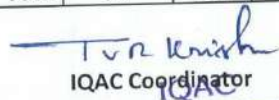 TVR Krish
IQAC Coordinator
IQAC